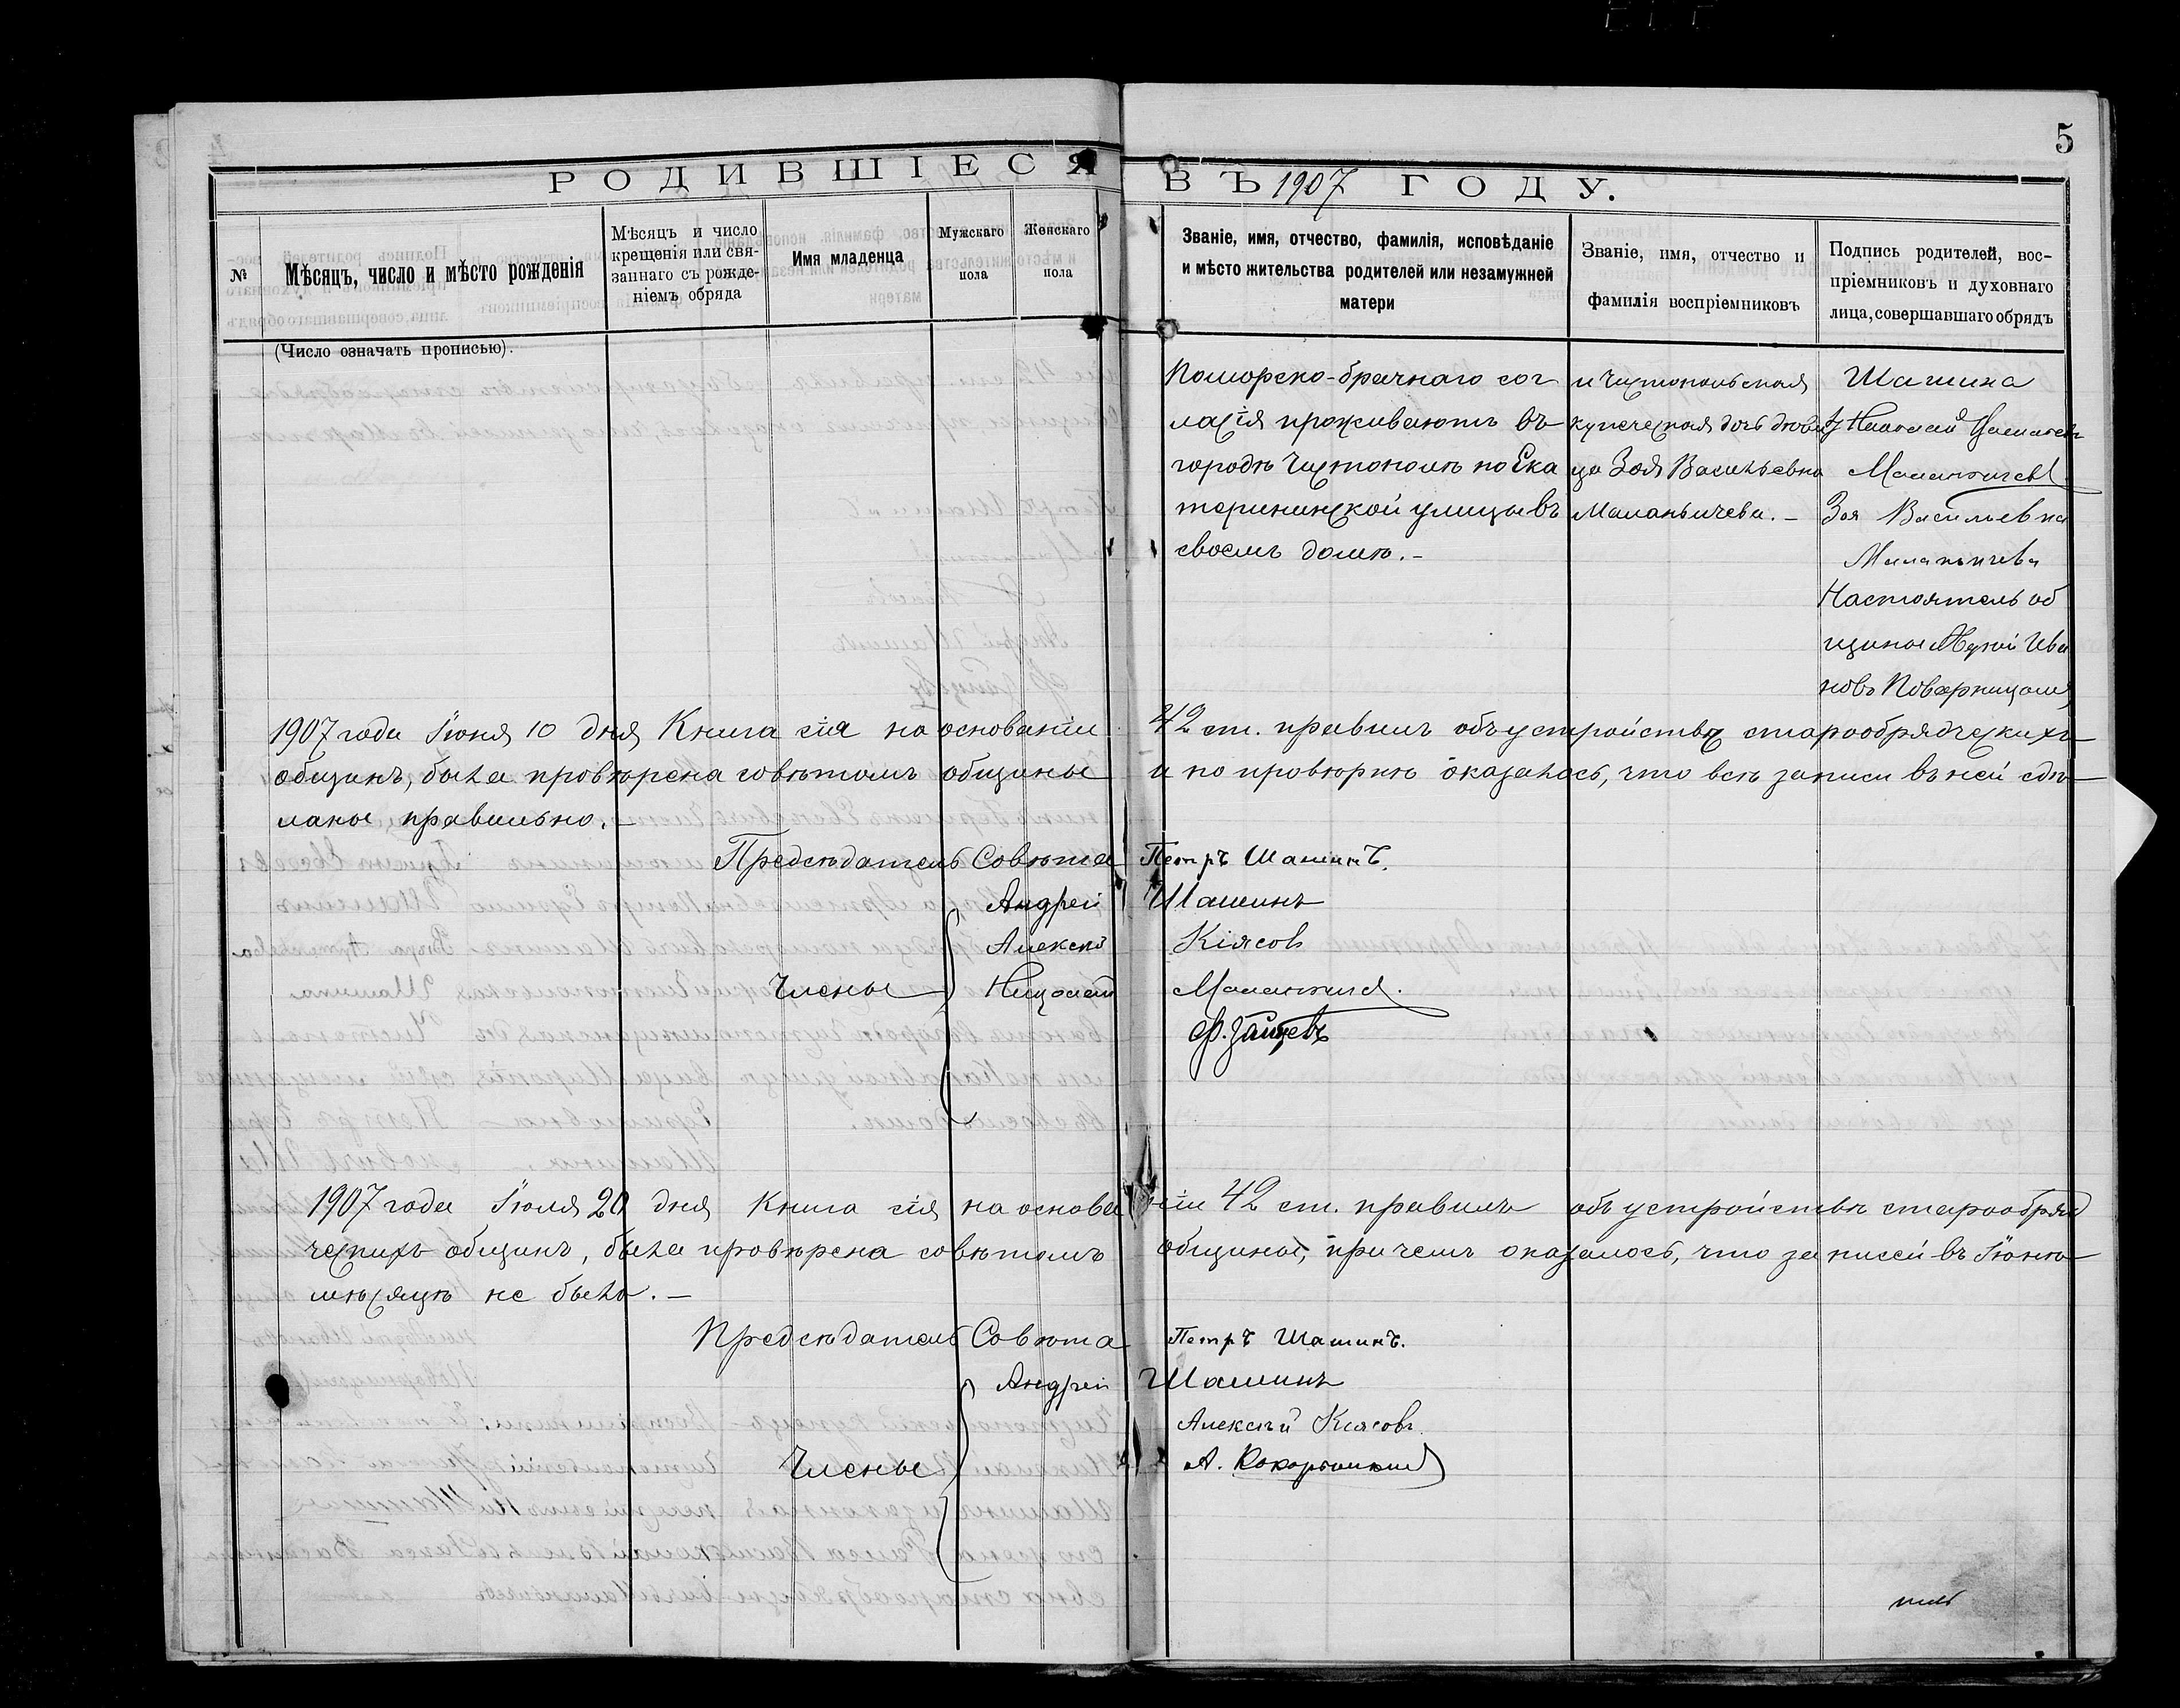 5
РОДИВШІЕСЯ ВЪ 1907 ГОДУ.
№
Мѣсяцъ, число и мѣсто рожденія
Мѣсяцъ и число
крещенія или свя-
заннаго съ рожде-
ніемъ обряда
Имя младенца
Мужскаго
пола
Женскаго
пола
Званіе, имя, отчество, фамилія, исповѣданіе
и мѣсто жительства родителей или незамужней
матери
Званіе, имя, отчество и
фамилія воспріемниковъ
Подпись родителей, вос-
пріемниковъ и духовнаго
лица, совершавшаго обрядъ
(Число означать прописью).
Поморско-брачнаго сог
ласія проживаютъ въ
городѣ Чистополѣ по Ека
терининской улицы въ
своемъ домѣ.-
и Чистопольская
купеческая дочь дѣви
ца Зоя Васильевна
Маланьичева.-
Шашина
Николай
Маланьичевъ
Зоя Васильевна
Маланьичева
Настоятель об
щины Ива
новъ
1907 года Іюня 10 дня Книга сія на основаніи 42 ст. правилъ объ устройствѣ старообрядческихъ
общинъ, была провѣрена совѣтомъ общины и по провѣркѣ оказалось, что всѣ записи въ ней сдѣ
ланы правильно.-
Предсѣдатель Совѣта Петръ Шашинъ.
Андрей Шашинъ
Алексѣй Кіясовъ
Члены Николай Маланьичевъ.
Ф. Зайцевъ
1907 года Іюля 20 дня Книга сія на основа ніи 42 ст. правилъ объ устройствѣ старообряд
ческихъ общинъ, была провѣрена совѣтомъ общины, при чемъ оказалось, что записей въ Іюнѣ
мѣсяцѣ не было.-
Предсѣдатель Совѣта Петръ Шашинъ.
Андрей Шашинъ
Алексѣй Кіясовъ
Члены А.